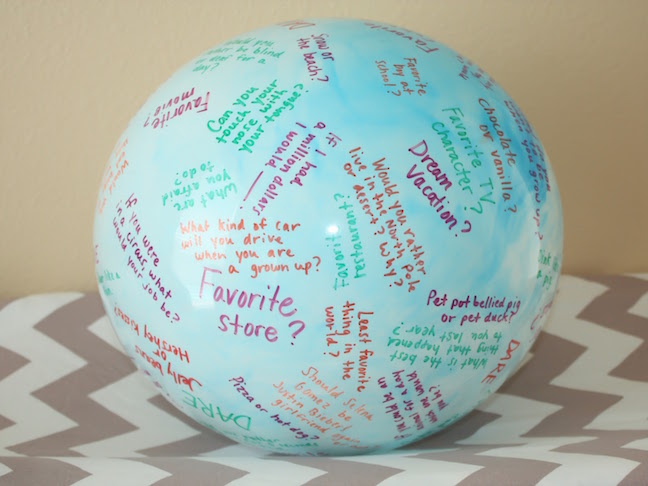 Snow or
the beach?
Favorite
day at
school?
be blind
for a
day?
Favorite
movie?
Can you
touch your
nose with
your tongue?
If I had
a million dollars
I would
Favorite TV
character?
Chocolate
or vanilla?
Dream
Vacation?
what are
you afraid
to do?
Would you rather
live in the North Pole
or desert? Why?
Favorite
restaurant?
If you were
in a circus what
would your job be?
What kind of car
will you drive
when you are
a grown up?
Favorite
store?
Least favorite
thing in the
world?
Pet pot bellied pig
or pet duck?
What is the best
thing that happened
to you last year?
DARE
Jelly beans
or
Hershey kiss?
DARE
Pizza or hot dog?
Should Selena
Gomez be
Justin Bieber
girlfriend